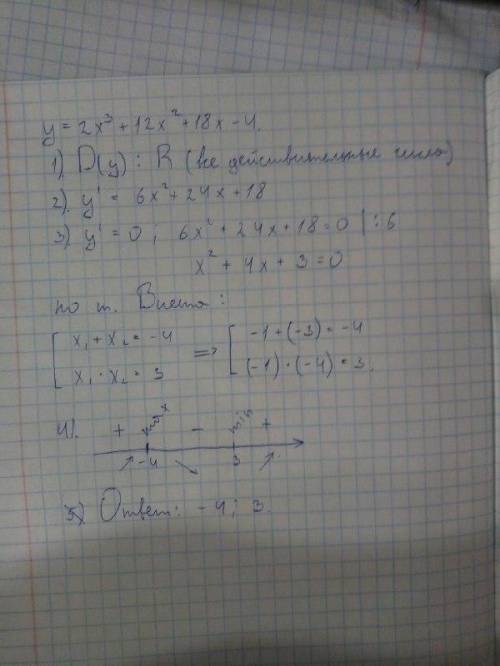 y = 2x³ + 12x² + 18x - 4.
1). D(y) : R (все действительные числа)
2). y' = 6x² + 24x + 18
3) y' = 0 ; 6x² + 24x + 18 = 0 | : 6
x² + 4x + 3 = 0
по т. Виета :
[ x₁ + x₂ = -4 => [ -1 + (-3) = -4
[ x₁ · x₂ = 3 [ (-1) · (-4) = 3.
4). + max - min +
↗ -4 ↘ 3 ↗
5) Ответ: -4 ; 3.